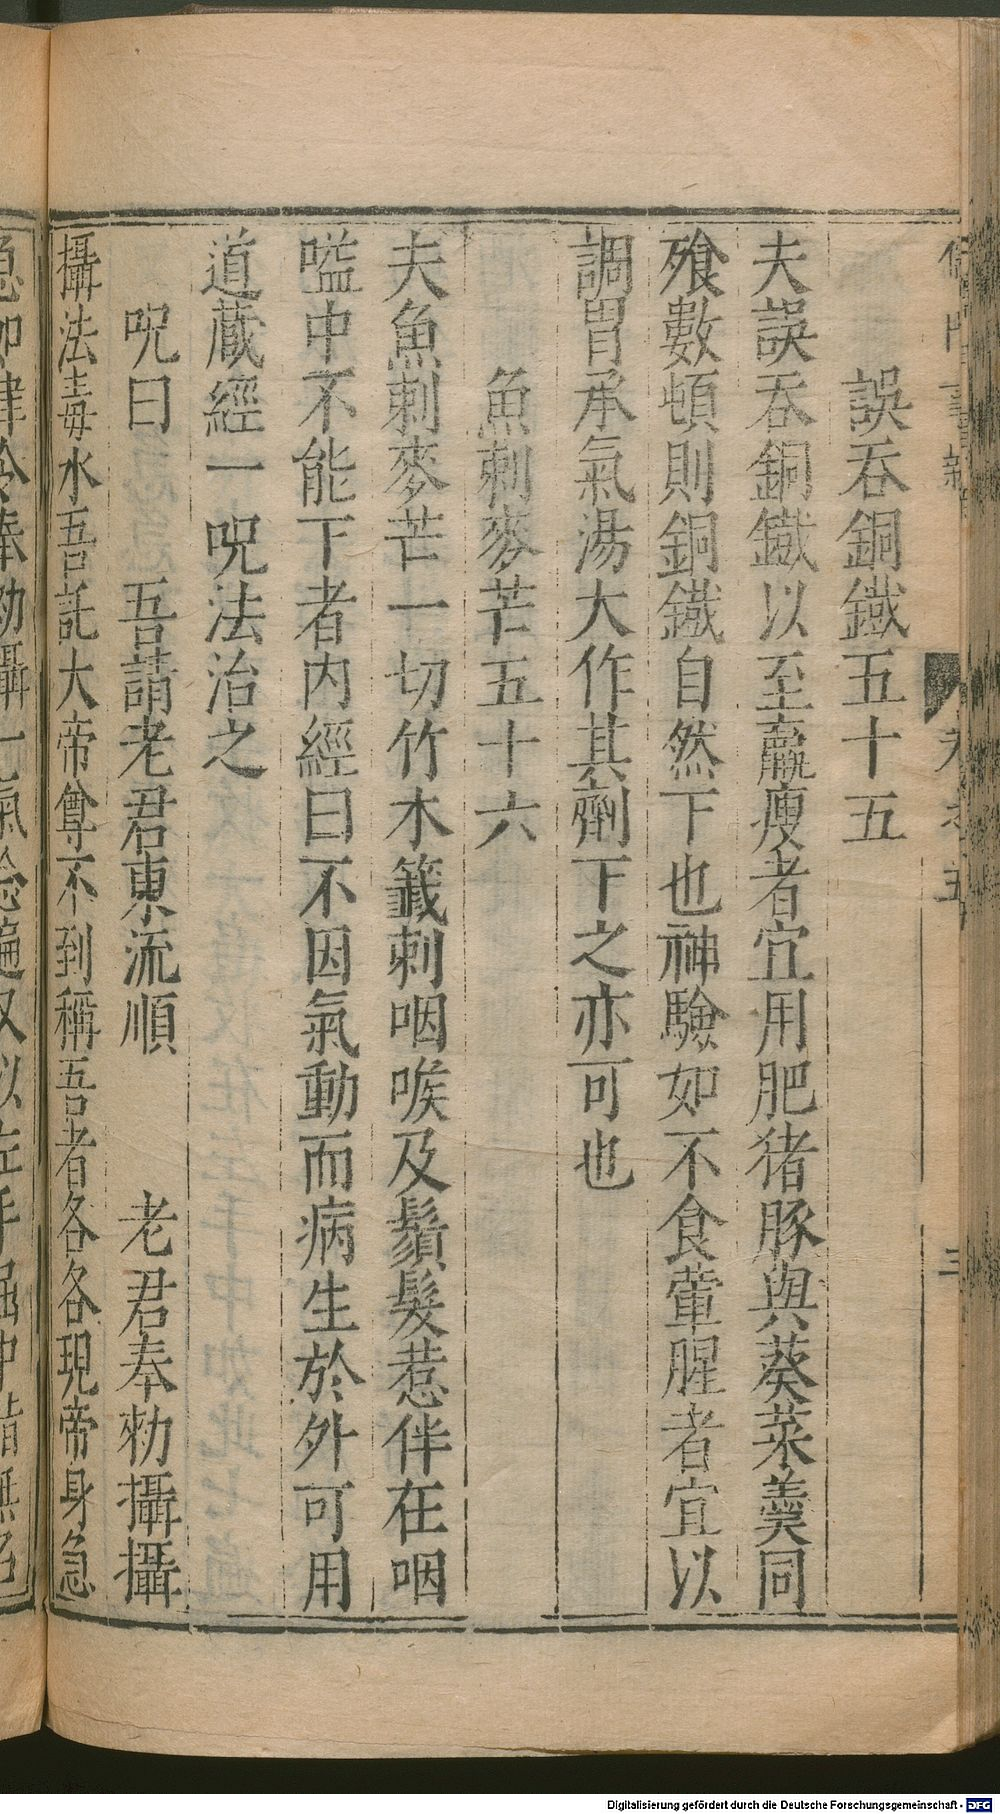 誤吞銅鐵五十五
夫誤吞銅鐵以至羸瘦者宜用肥猪豚與葵菜羹同
飱數頓則銅鐵自然下也神驗如不食葷腥者宜以
調胃承氣湯大作其劑下之亦可也
魚刺麥芒五十六
夫魚刺麥芒一切竹木籤刺咽喉及鬚髮惹伴在咽
嗌中不能下者內經曰不因氣動而病生於外可用
道藏經一呪法治之
呪曰 吾請老君東流順 老君奉勑攝攝
攝法毒水吾託大帝尊不到稱吾者各各現帝身急
急如律令奉勑攝一氣念遍又以左手屈中指無名
Digitalisierung gefördert durch die Deutsche Forschungsgemeinschaft - DFG